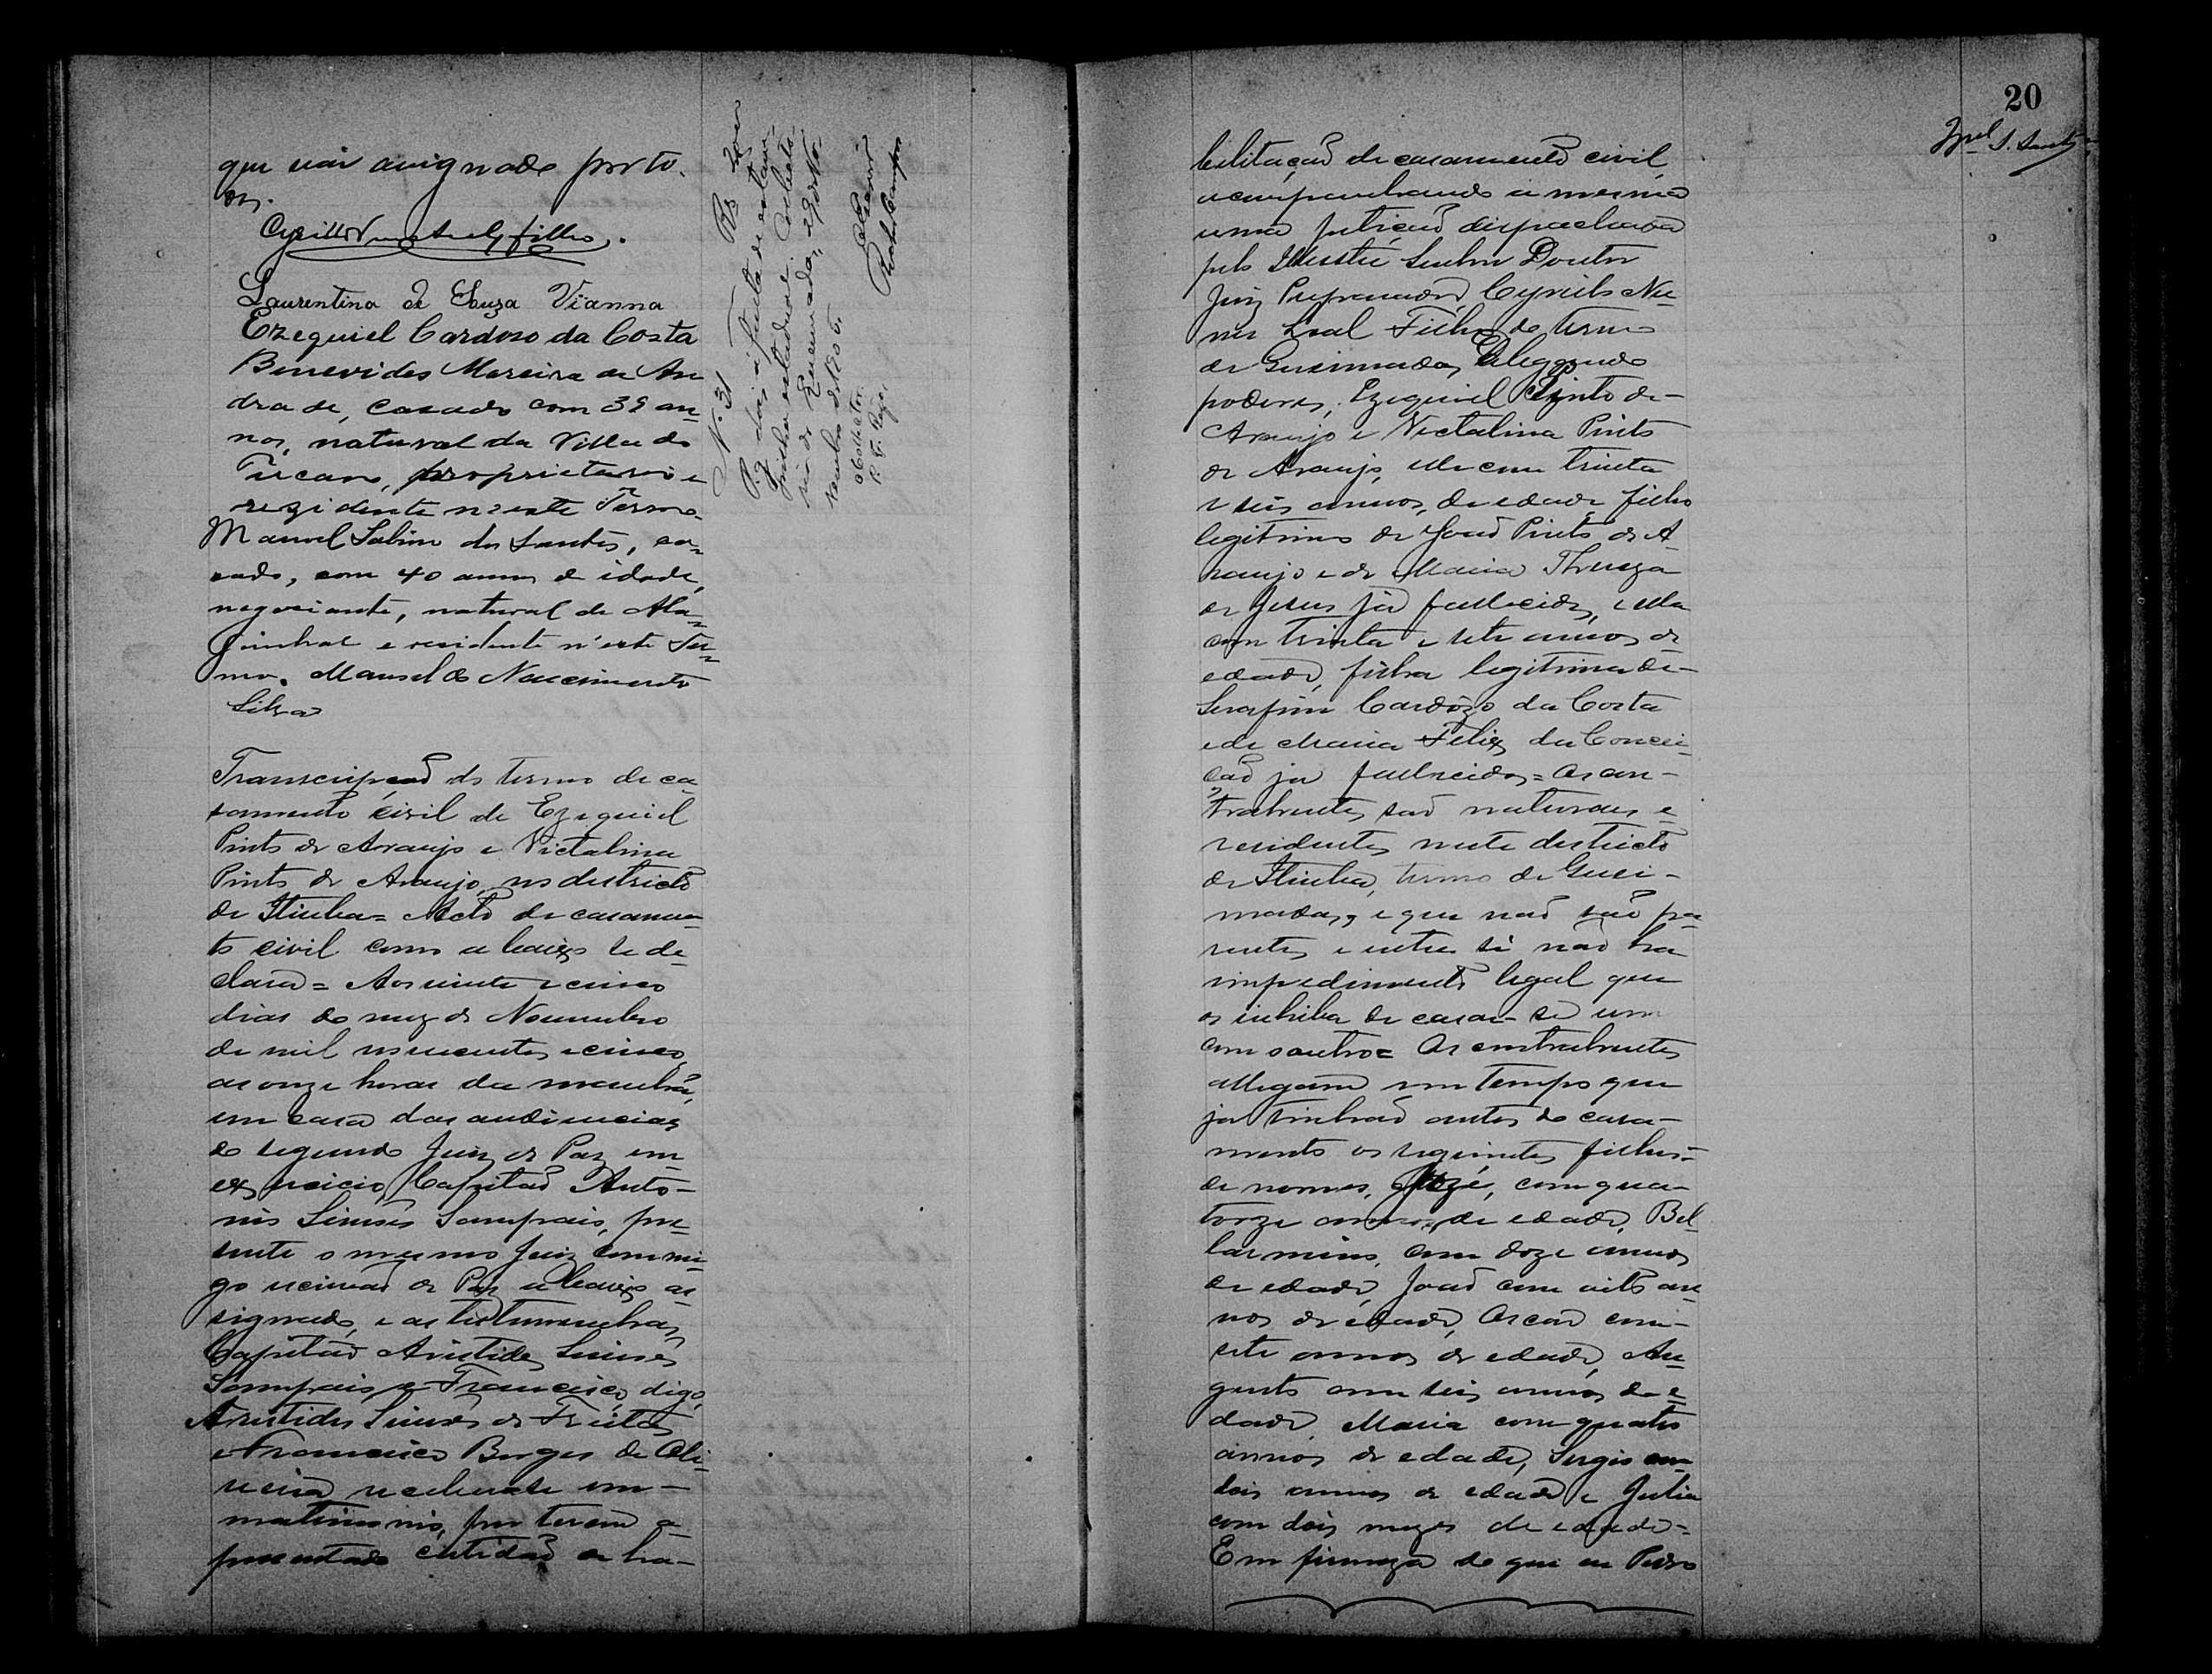 que vai assignado por to-
dos.
Cyrillo Nunes Leal filho.
Laurentina de Souza Vianna
Ezequiel Cardoso da Costa
Benevides Moreira de An
drade, casado com 38 an
nos, natural da Villa do
Tucano, proprietario e
rezidente n'este Termo
Manoel Sabino dos Santos, ca-
sado, com 40 annos de idade,
negociante, natural de Ala-
goinhas e residente n'este Ter-
mo. Manoel do Nascimento
Silva
Transcripção do termo de ca-
samento civil de Ezequiel
Pinto de Araujo e Victalina
Pinto de Araujo, no districto
de Itiuba = Acto de casamen-
to civil como abaixo se de-
clara = Aos vinte e cinco
dias do mez de Novembro
de mil novecentos e cinco,
as onze horas da manhã,
em casa das audiencias
do segundo Juiz de Paz em
exercicio, Capitão Anto-
nio Simões Sampaio, pre-
sente o mesmo Juiz commi-
go escrivão de Paz abaixo as
signado, e as testemunhas,
Capitão Aristides Simões
Sampaio e Francisco, digo,
Aristides Simões de Freitas
e Francisco Borges de Oli-
veira receberão em-
matrimonio, por terem a-
presentado certidão de ha-
N. 31 Rs
P. dois
estadual
Queimadas, 29
O Collector
20
bilitação de casamento civil,
acompanhando a mesma
uma petição despachada
pelo Illustre Senhor Doutor
Juiz Preparador, Cyrillo Nu-
nes Leal Filho do termo
de Queimadas,
poderes, Ezequiel Pinto de-
Araujo e Victalina Pinto
de Araujo, elle com trinta
e seis annos, de edade, filho
legitimo de João Pinto de A-
raujo e de Maria Thereza
de Jesus já fallecidos, e ella
com trinta e sete annos de
edade, filha legitima de-
Serafim Cardozo da Costa
e de Maria Felix da Concei-
ção já fallecidos = Os con-
trahentes são naturaes e
residentes neste destricto
de Itiuba, termo de Quei-
madas, e que não são pa-
rentes e entre si não ha
impedimento legal que
os inhiba de casar-se um
com o outro = Os contrahentes
allegarão em tempo que
ja tinhão antes do casa-
mento os seguintes filhos-
de nomes, José, com qua-
torze annos, de edade, Bel-
larmino, com doze annos
de edade, João com oito an-
nos de edade, Oscar com-
sete annos de edade, Au-
gusto com seis annos de e
dade, Maria com quatro
annos de edade, Sergio com
dois annos de edade e Julia
com dois mezes de edade =
Em firmeza do que eu Pedro